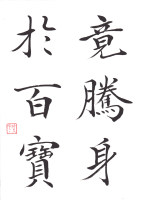 竟騰身
於百寶